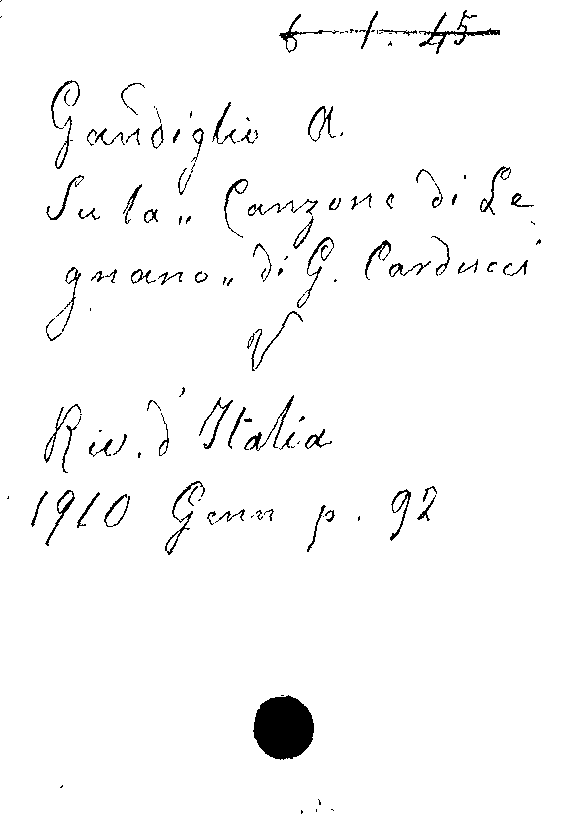 6 1. 45
Gandiglio A.
Su la „ Canzone di Le
gnano „ di G. Carducci
V
Riv. d'Italia
1910 Genn p. 92